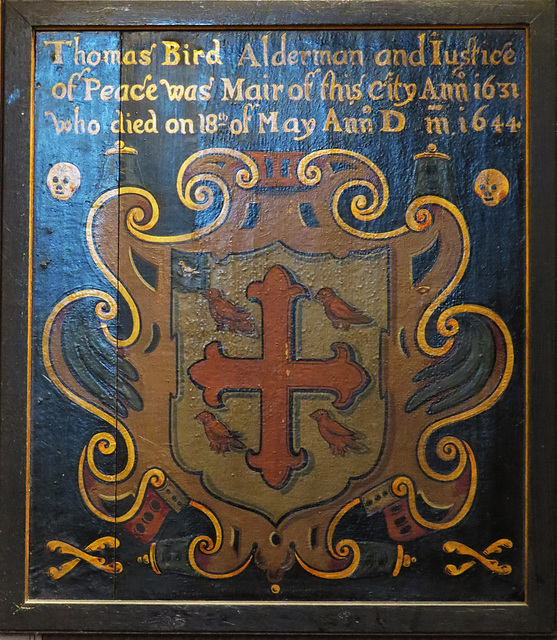 Thomas Bird Alderman and Iustice
of Peace was Mair of this City Ann̊ 1631
who died on 18th of May Ann̊ D m̄i 1644